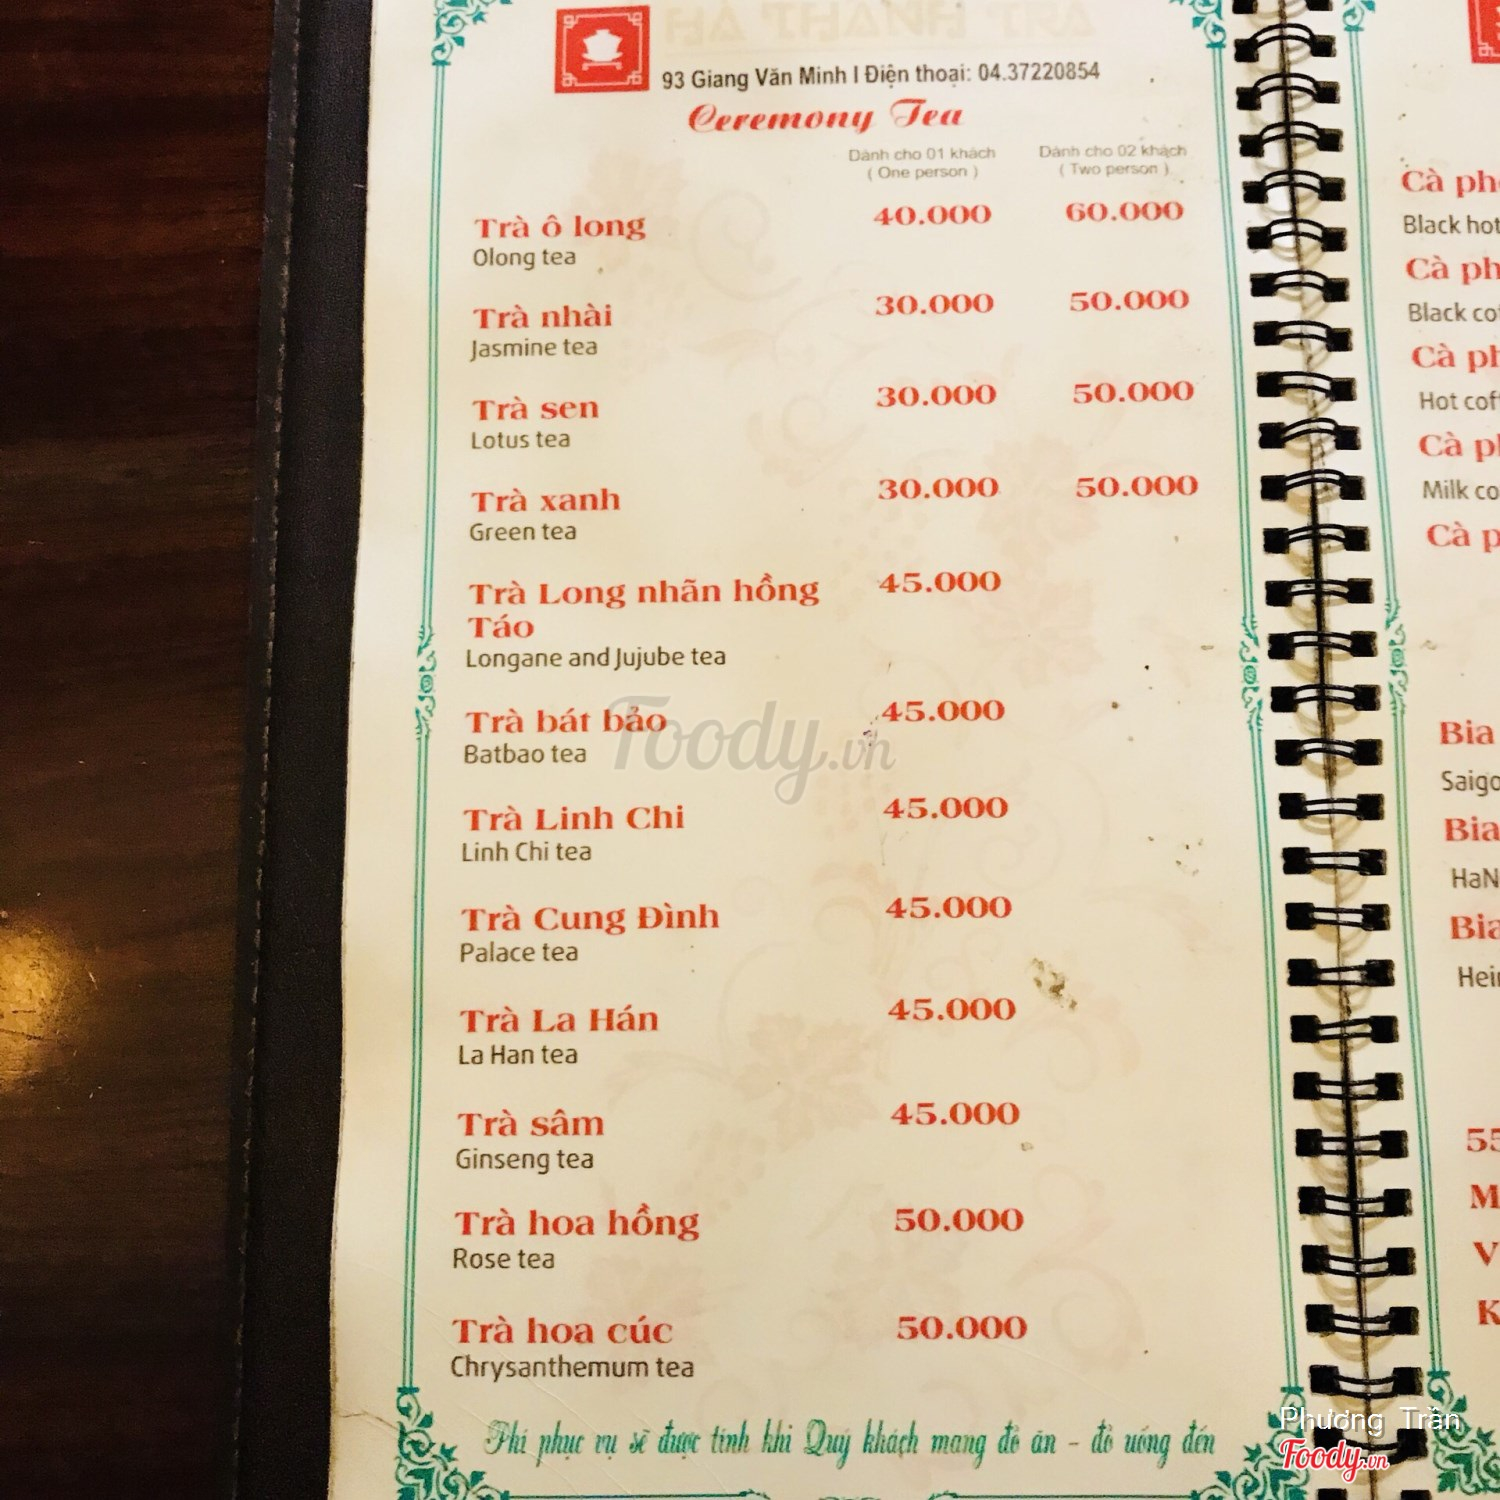 HÀ THÀNH TRÀ
93 Giang Văn Minh I Điện thoại: 04.37220854
Ceremony Tea
Dành cho 01 khách Dành cho 02 khách
( One person ) ( Two person )
Trà ô long 40.000 60.000
Olong tea
Trà nhài 30.000 50.000
Jasmine tea
Trà sen 30.000 50.000
Lotus tea
Trà xanh 30.000 50.000
Green tea
Trà Long nhãn hồng 45.000
Táo
Longane and Jujube tea
Trà bát bảo 45.000
Batbao tea
Trà Linh Chi 45.000
Linh Chi tea
Trà Cung Đình 45.000
Palace tea
Trà La Hán 45.000
La Han tea
Trà sâm 45.000
Ginseng tea
Trà hoa hồng 50.000
Rose tea
Trà hoa cúc 50.000
Chrysanthemum tea
Phí phục vụ sẽ được tính khi Quý khách mang đồ ăn - đồ uống đến
Foody.vn
Cà
Black hot
Cà
Black
Cà
Hot
Cà
Milk
Cà
Bia
Bia
Bia
Phương Trần
Foody.vn